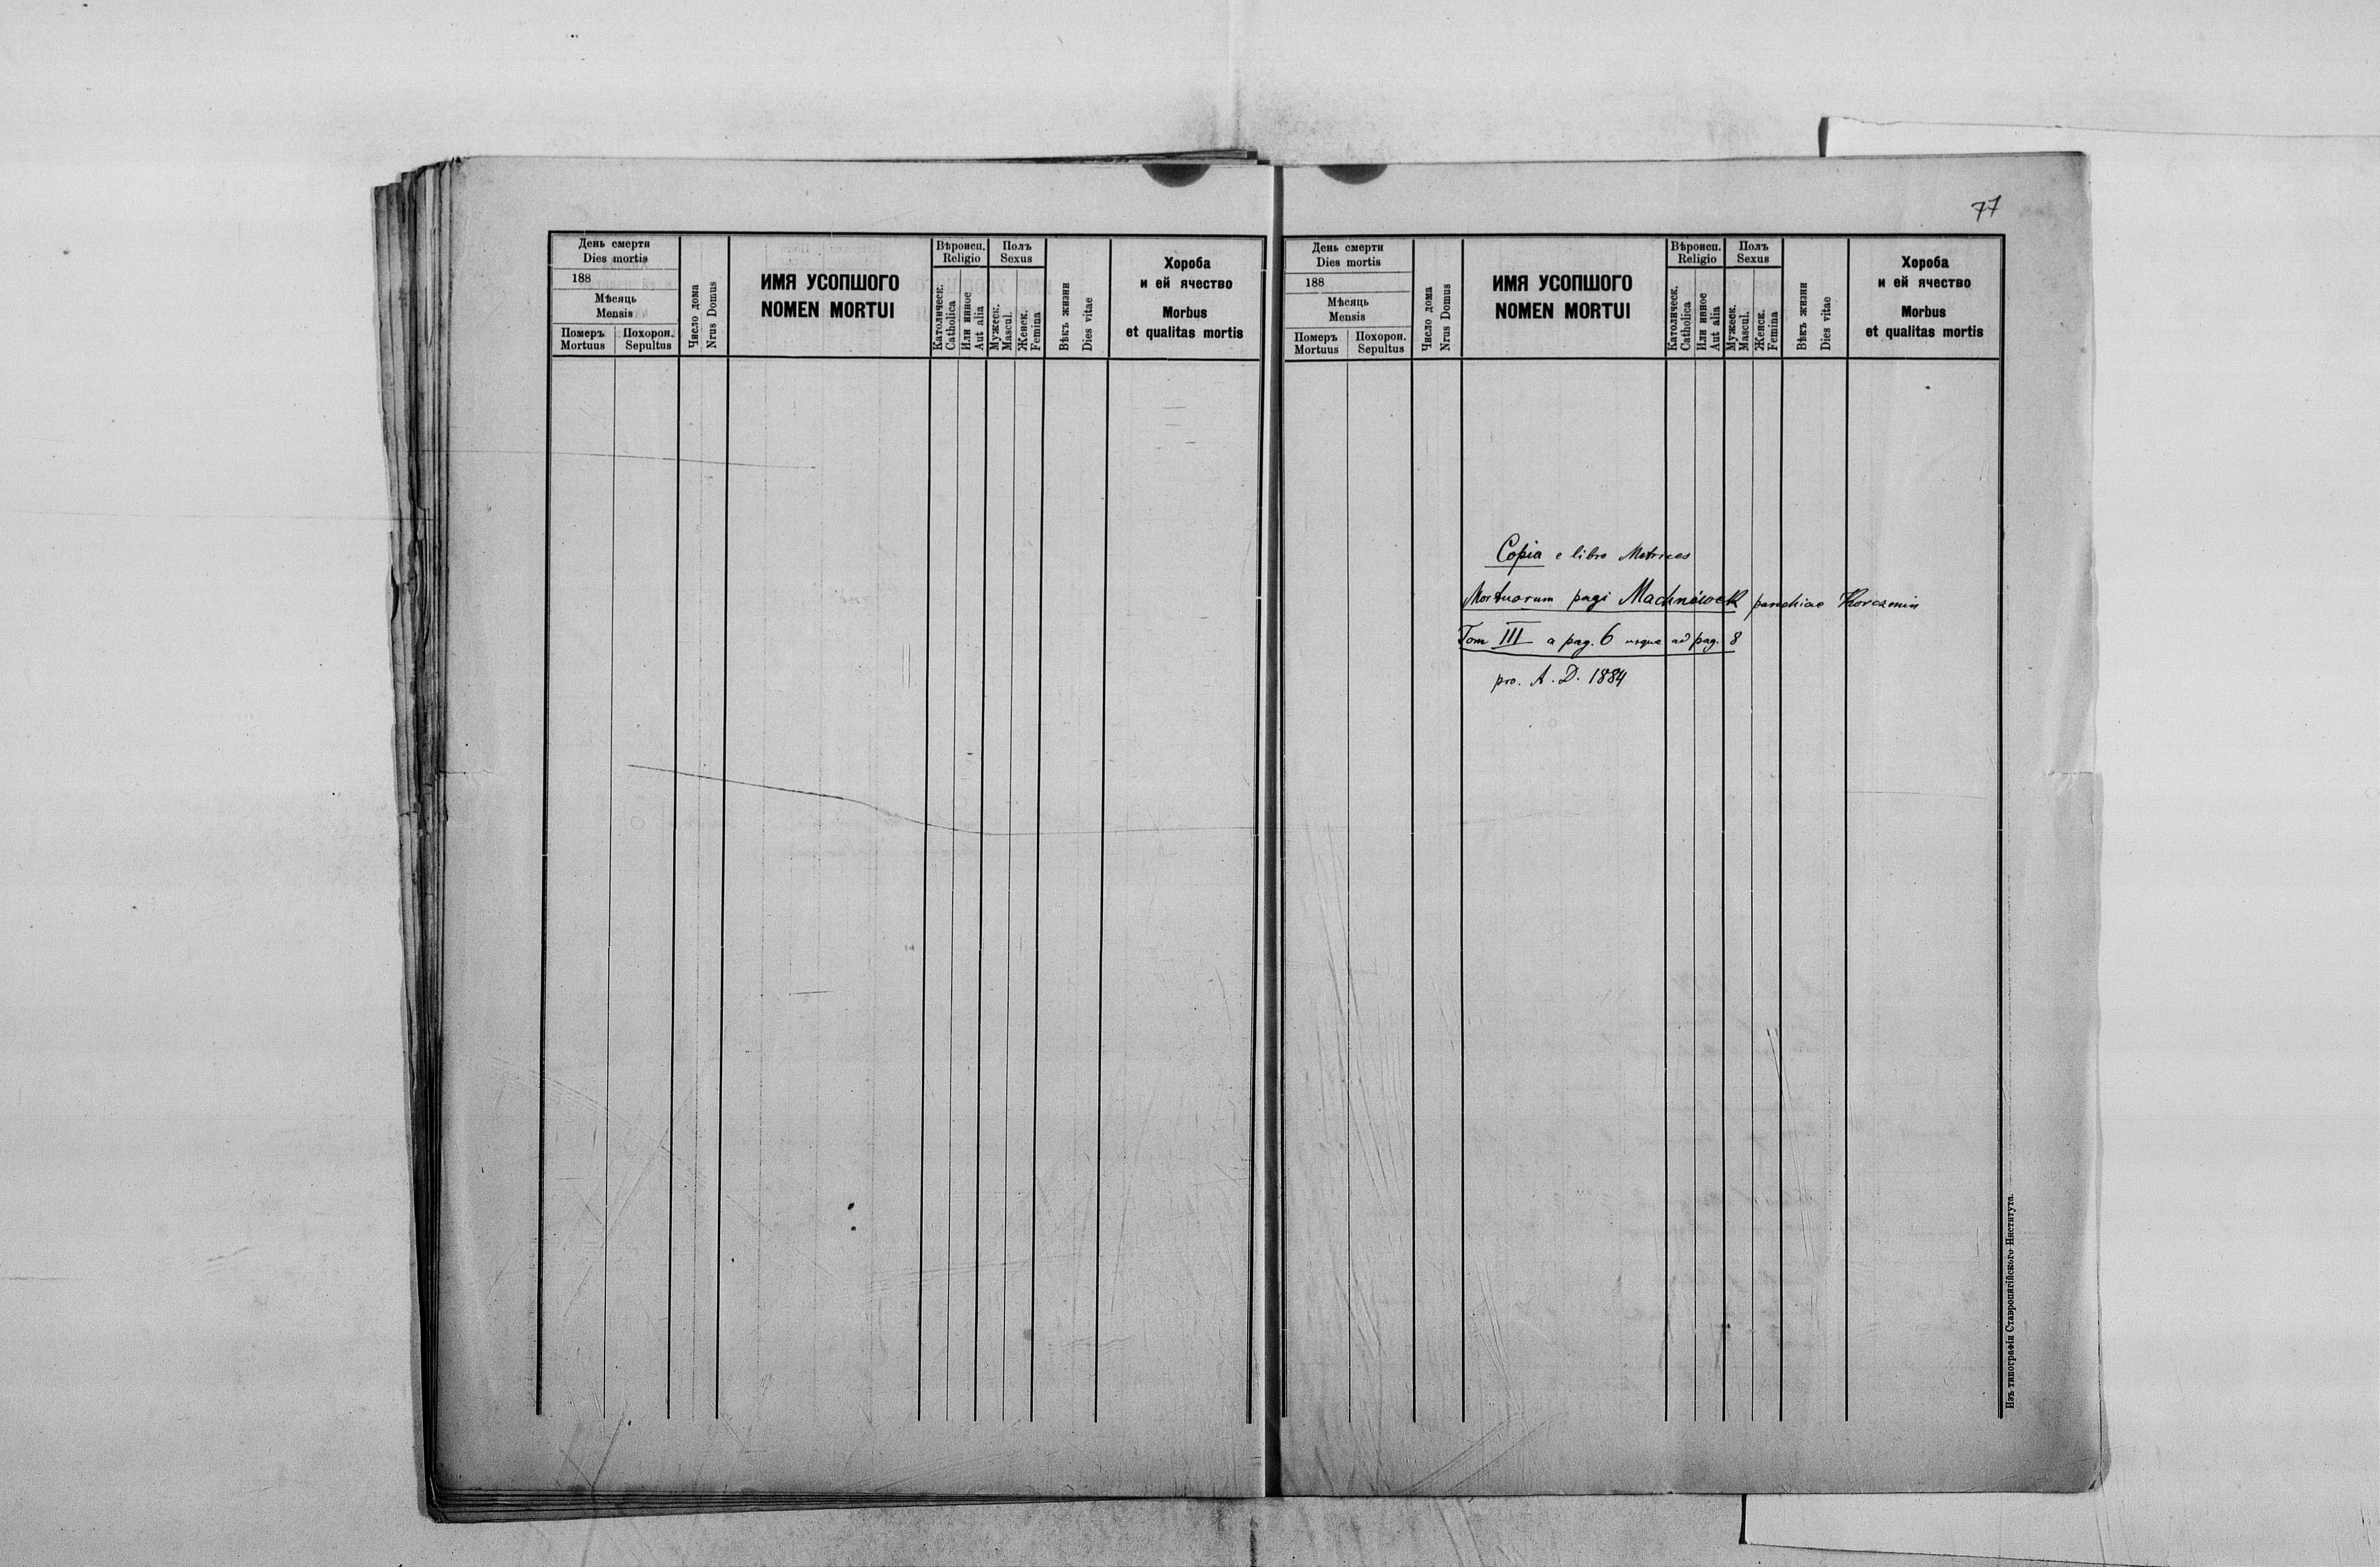 День смерти
Dies mortis
188
Мѣсяць
Mensis
Померъ
Mortuus
Похорон.
Sepultus
Число дома
Nrus Domus
ИМЯ УСОПШОГО
NOMEN MORTUI
Вѣроисп.
Religio
Католическ.
Catholica
Или инное
Aut alia
Полъ
Sexus
Мужеск.
Mascul.
Женск.
Femina
Вѣкъ жизни
Dies vitae
Хороба
и ей ячество
Morbus
et qualitas mortis
77
День смерти
Dies mortis
188
Мѣсяць
Mensis
Померъ
Mortuus
Похорон.
Sepultus
Число дома
Nrus Domus
ИМЯ УСОПШОГО
NOMEN MORTUI
Вѣроисп.
Religio
Католическ.
Catholica
Или инное
Aut alia
Полъ
Sexus
Мужеск.
Mascul.
Женск.
Femina
Вѣкъ жизни
Dies vitae
Хороба
и ей ячество
Morbus
et qualitas mortis
Copia e libro Metrices
Mortuorum pagi Machnówek parochiae Korczmin
Tom III a pag. 6 usque ad pag. 8
pro. A. D. 1884
Изъ типографіи Ставропигійского Института.